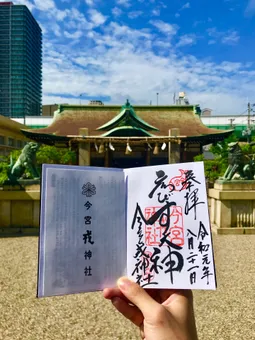 奉拝
令和元年
八月二十一日
ゑびす大神
今宮戎神社
今宮戎神社